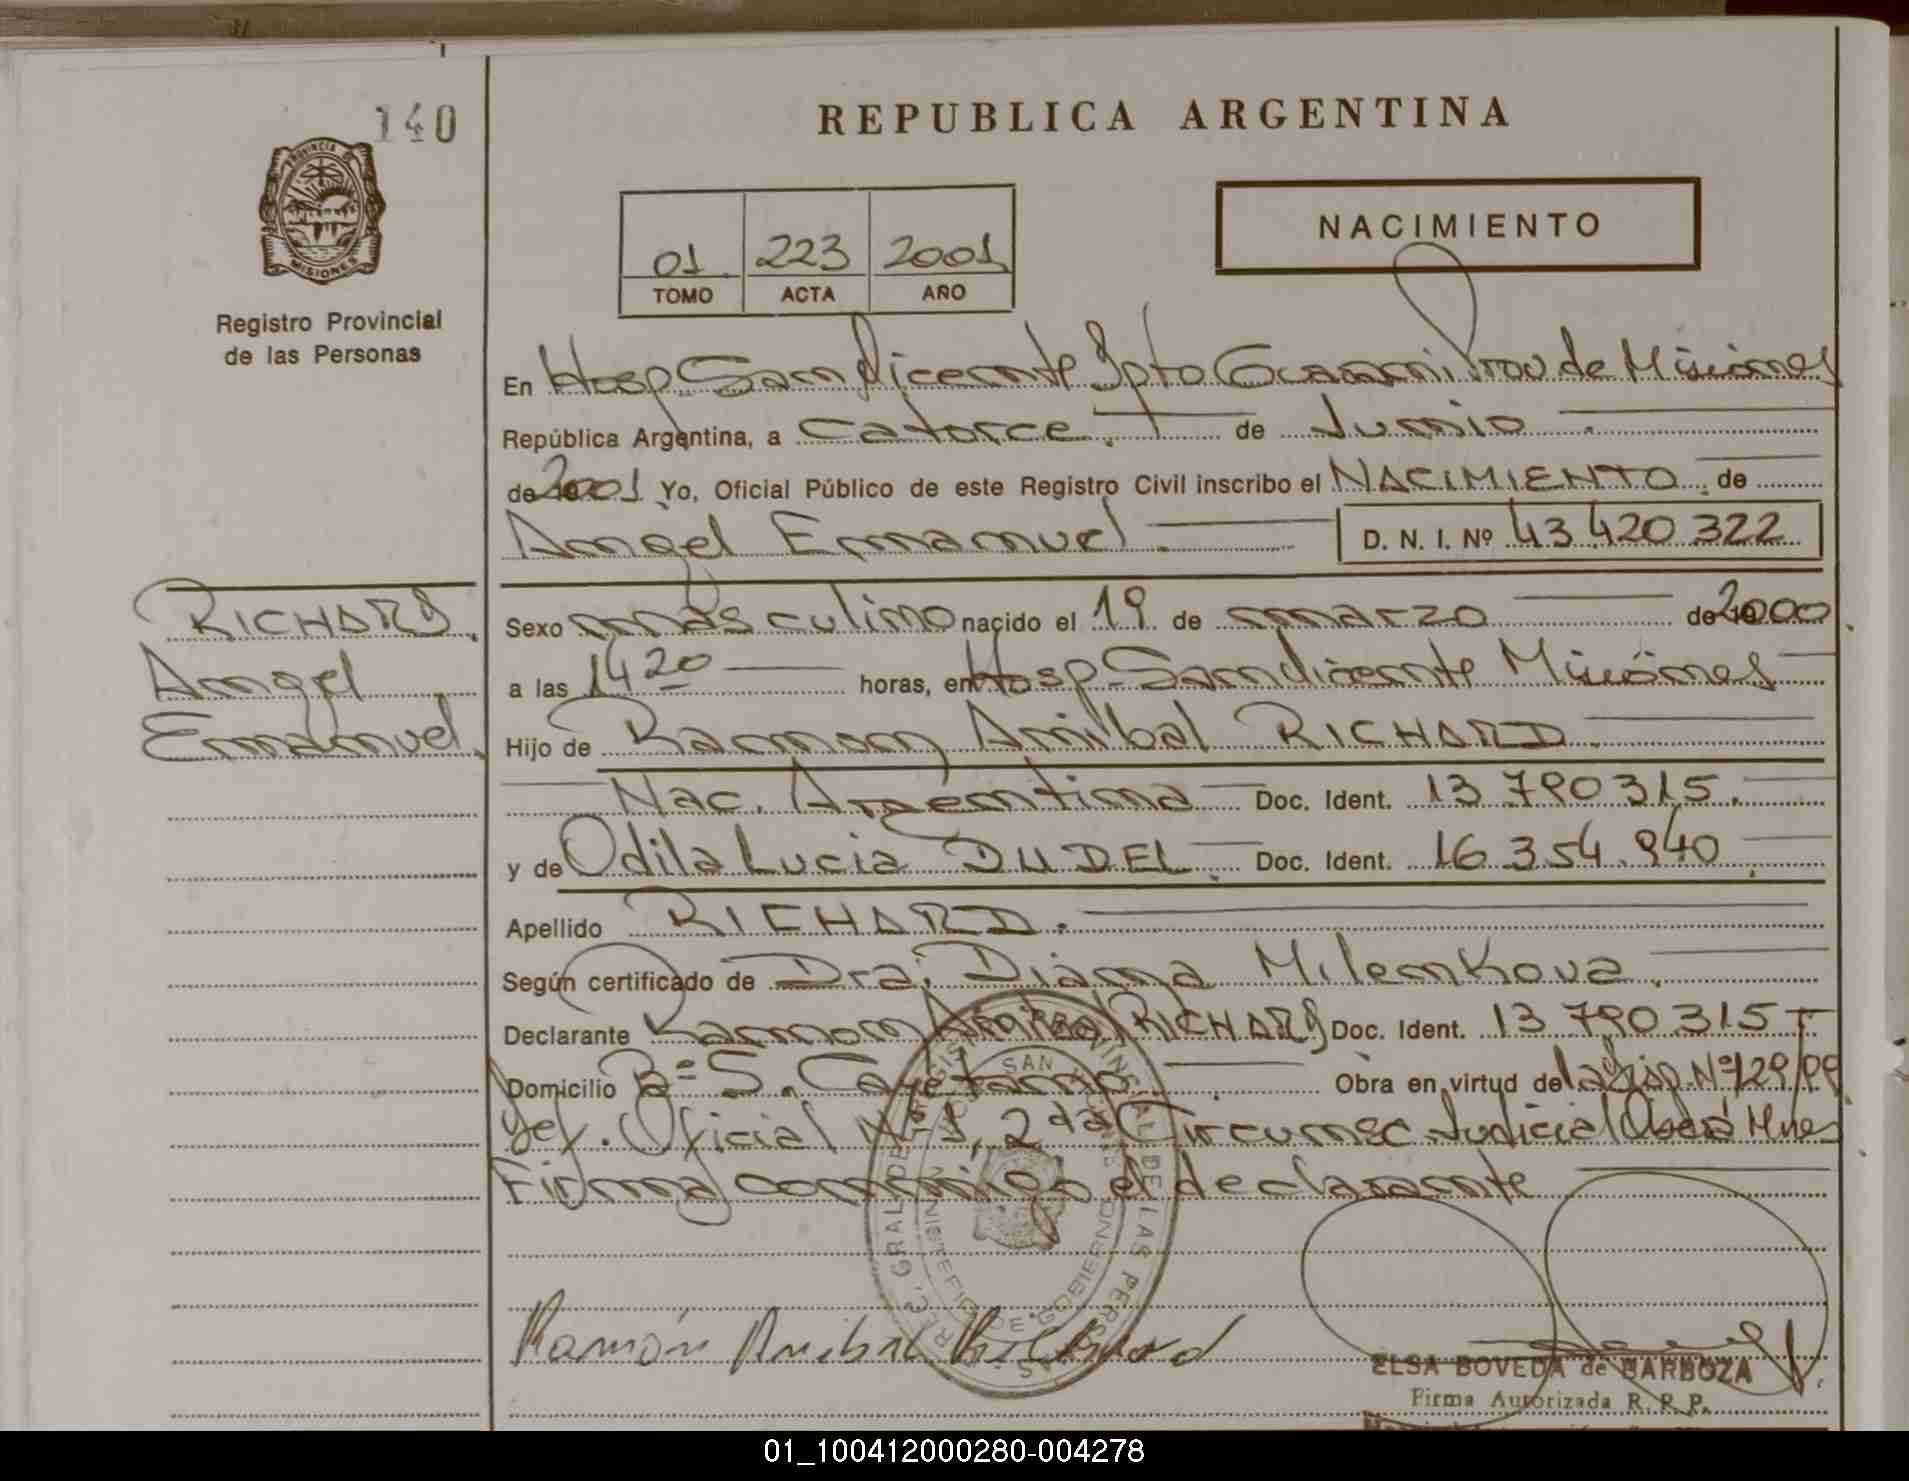 140
REPUBLICA ARGENTINA
PROVINCIA DE
MISIONES
Registro Provincial
de las Personas
NACIMIENTO
01 223 2001
TOMO ACTA AÑO
En Hosp San Vicente Dpto Guarani Prov de Misiones
República Argentina, a catorce. de Junio
de 2001 Yo, Oficial Público de este Registro Civil inscribo el NACIMIENTO de
Angel Emmanuel D. N. I. Nº 43 420 322
RICHARD
Angel
Emmanuel
Sexo masculino nacido el 19 de marzo de 2000
a las 14 20 horas, en Hosp San Vicente Misiones
Hijo de Ramon Anibal RICHARD
Nac. Argentina Doc. Ident. 13 790 315
y de Odila Lucia DUDEL Doc. Ident. 16 354 940
Apellido RICHARD
Según certificado de Dra. Diana Milenkova
Declarante Ramon Anibal RICHARD Doc. Ident. 13 790 315
Domicilio Bº S. Cayetano Obra en virtud de la Disp. Nº 129/99
Def. Oficial Nº 1, 2da Circunsc Judicial Oberá Mnes
Firma conmigo el declarante
Ramón Anibal Richard
ELSA BOVEDA de BARBOZA
Firma Autorizada R. P. P.
01_100412000280-004278